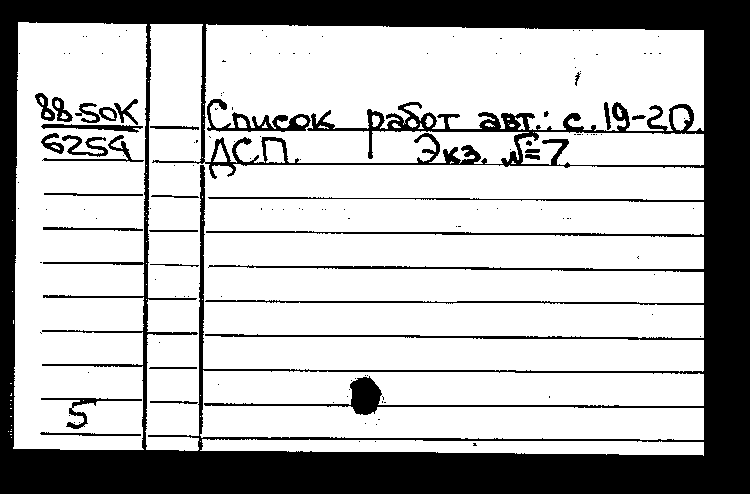 88-50К Список работ авт.: с.19-20.
6254 ДСП. Экз. №7.
5